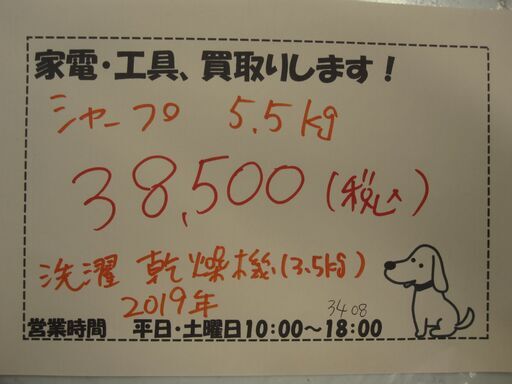 家電・工具、買取りします!
シャープ 5.5kg
38,500(税込)
洗濯乾燥機(3.5kg)
2019年
3408
営業時間 平日・土曜日10:00～18:00